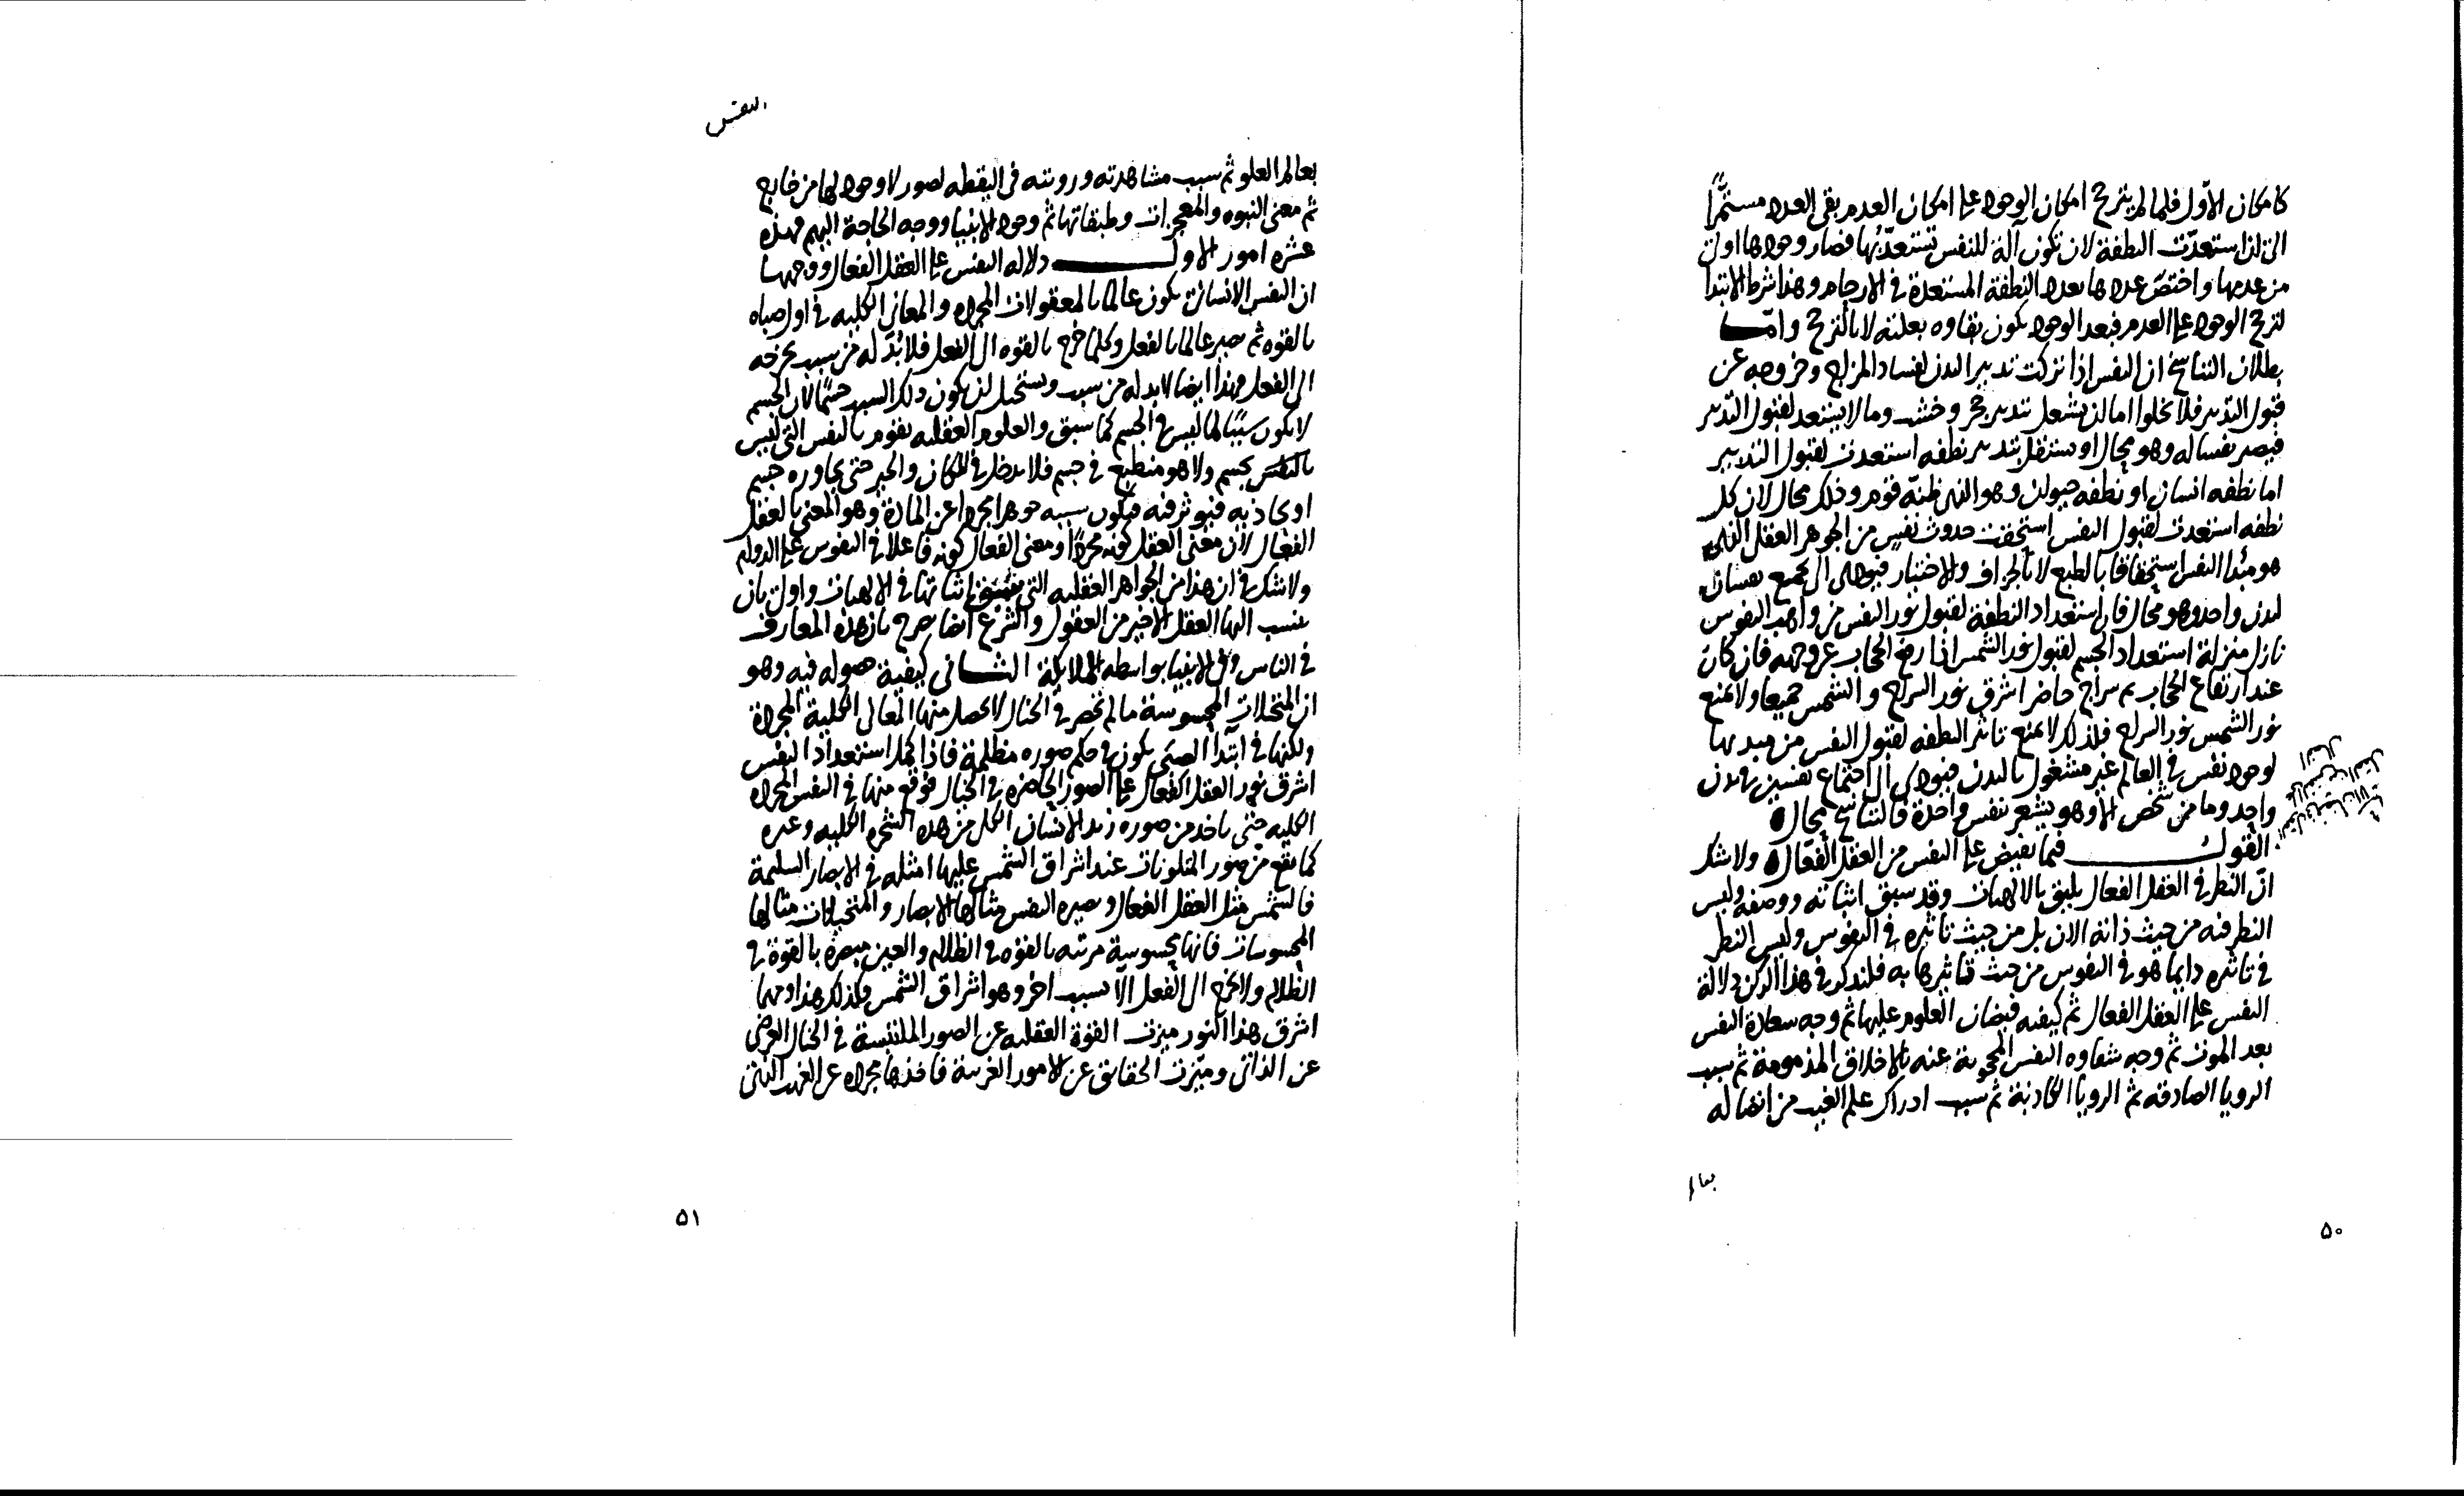 كامكان الاول فلما لم يترجح امكان الوجود على امكان العدم بقى العدم مستمرًا
الى ان استعدت النطفة لان تكون آلة للنفس تستعد بها فصار وجودها اولى
من عدمها واختص عددها بعدد النطفة المستعدة فى الارحام وهذا شرط الابتدا
لترجح الوجود على العدم فبعد الوجود يكون بقاوه بعلته لا بالترجح وامّا
بطلان التناسخ ان النفس اذا تركت تدبير البدن لفساد المزاج وخروجه عن
قبول التدبير فلا يخلوا اما ان يشتغل بتدبير حجر وخشب وما لا يستعد لقبول التدبير
فيصير نفسا له وهو محال او يستقل بتدبير نطفه استعدت لقبول التدبير
اما نطفه انسان او نطفه حيوان وهو الذى ظنه قوم وذلك محال لان كل
نطفه استعدت لقبول النفس استحقت حدوث نفس من الجوهر العقلى الذى
هو مبدا النفس استحقاقا بالطبع لا بالجزاف والاختيار فيودى الى جميع نفسان
لبدن واحد وهو محال فان استعداد النطفة لقبول نور النفس من واهب النفوس
نازل منزلة استعداد الجسم لقبول نور الشمس اذا رفع الحجاب عن وجهه فان كان
عند ارتفاع الحجاب ثم سراج حاضر اشرق نور السراج والشمس جميعا ولا يمنع
نور الشمس نور السراج فلذلك لا يمنع تاثر النطفه لقبول النفس من مبديها
لوجود نفس فى العالم غير مشغول بالبدن فيودى الى اجتماع نفسين فى بدن
واحد وما من شخص الا وهو يشعر بنفس واحدة فالتناسخ محال
القول فيما يفيض على النفس من العقل الفعّال ولا شك
انّ النظر فى العقل الفعال يليق بالالهيات وقد سبق اثباته ووصفه وليس
النظر فيه من حيث ذاته الان بل من حيث تاثيره فى النفوس وليس النظر
فى تاثيره دايما هو فى النفوس من حيث تاثيرها به فلنذكر فى هذا الركن دلالة
النفس على العقل الفعال ثم كيفيه فيضان العلوم عليها ثم وجه سعادة النفس
بعد الموت ثم وجه شقاوه النفس المحجوبة عنه بالاخلاق المذمومة ثم سبب
الرويا الصادقه ثم الرويا الكاذبة ثم سبب ادراك علم الغيب من اتصاله
٥٠
النفس
بعالم العلو ثم سبب مشاهدته ورويته فى اليقظه لصور لا وجود لها من خارج
ثم معنى النبوه والمعجزات وطبقاتها ثم وجود الانبيا ووجه الحاجة اليهم فهذه
عشره امور الاول دلاله النفس على العقل الفعال ووجهها
ان النفس الانسانى يكون عالما بالمعقولات المجرده والمعانى الكليه فى اول صباه
بالقوه ثم يصير عالما بالفعل وكلما خرج بالقوه الى الفعل فلا بدّ له من سبب يخرجه
الى الفعل فهذا ايضا لا بد له من سبب ويستحيل ان يكون ذلك السبب جسمًا لان الجسم
لا يكون سببًا لما ليس فى الجسم كما سبق والعلوم العقليه يقوم بالنفس التى ليس
بجسم ولا هو منطبع فى جسم فلا يدخل فى المكان والحيز حتى يجاوره جسم
او يحاذيه فيوثر فيه فيكون سببه جوهرا مجردا عن المادة وهو المعنى بالعقل
الفعال لان معنى العقل كونه مجردًا ومعنى الفعال كونه فاعلا فى النفوس على الدوام
ولا شك فى ان هذا من الجواهر العقليه التى اثباتها فى الالهيات واولى بان
ينسب اليها العقل الاخير من العقول والشرع ايضا صرح بان هذه المعارف
فى الناس وفى الانبيا بواسطه الملايكة الثــانى كيفية حصوله فيه وهو
ان المتخيلات المحسوسة ما لم تحصر فى الخيال لا يحصل منها المعانى الكلية المجردة
ولكنها فى ابتدا الصبى يكون فى حكم صوره مظلمة فاذا كمل استعداد النفس
اشرق نور العقل الفعال على الصور الحاضره فى الخيال فوقع منها فى النفس المجرده
الكليه حتى ياخد من صوره زيد الانسان الكل من هذه الشجره الكليه وغيره
كما يقع من صور المتلونات عند اشراق الشمس عليها امثله فى الابصار السليمة
فالشمس مثل العقل الفعال وبصيره النفس مثالها الابصار والمتخيلات مثالها
المحسوسات فانها محسوسة مرئيه بالقوه فى الظلام والعين مبصرة بالقوة فى
الظلام ولا يخرج الى الفعل الا بسبب اخر وهو اشراق الشمس فكذلك هذا ومهما
اشرق هذا النور ميزت القوة العقليه عن الصور الملتبسة فى الخيال العرضى
عن الذاتى وميّزت الحقايق عن الامور الغريبة فاخذها مجرده عن الغريب
٥١